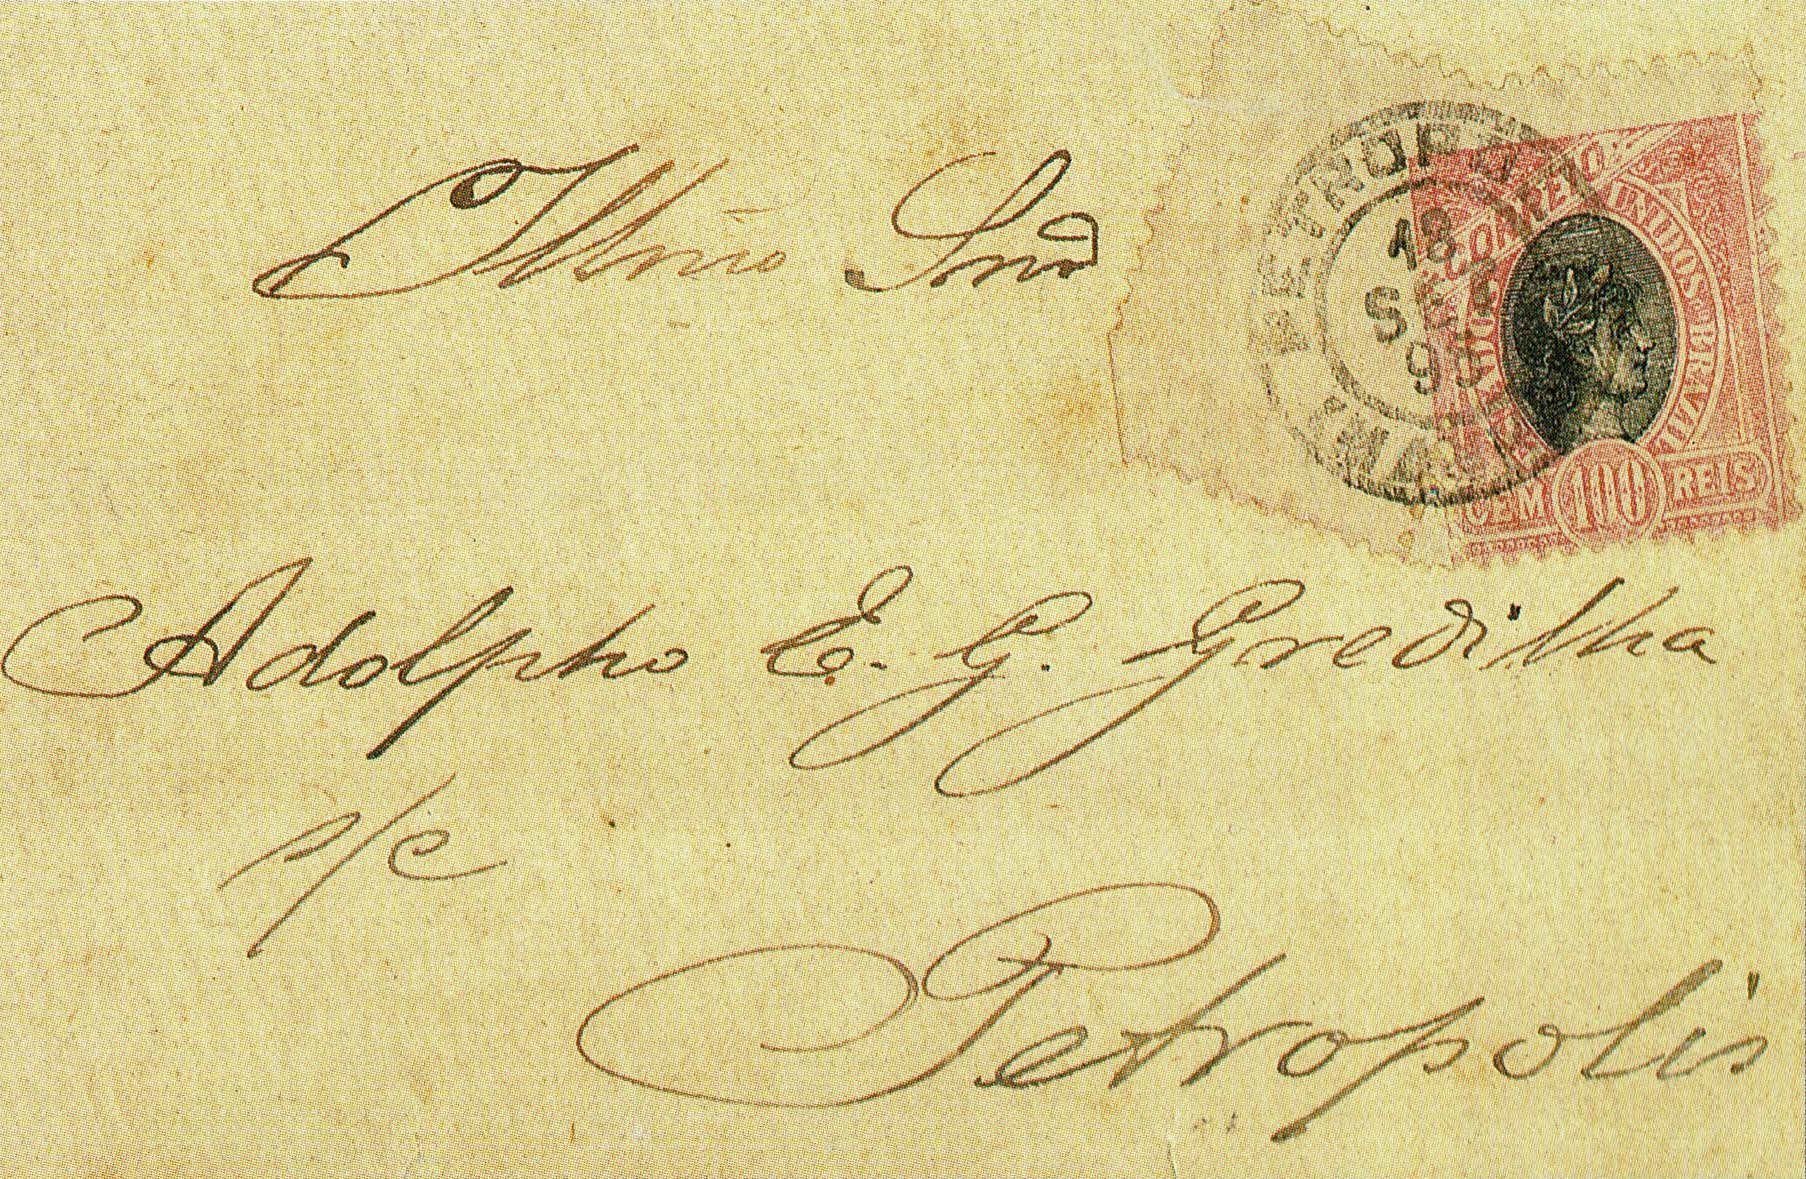 Illmo Snr
Adolpho E. G. Gredilha
s/c
Petropolis
PETROPOLIS
18
SET
95
ESTADOS UNIDOS BRAZIL
CORREIO
CEM 100 REIS